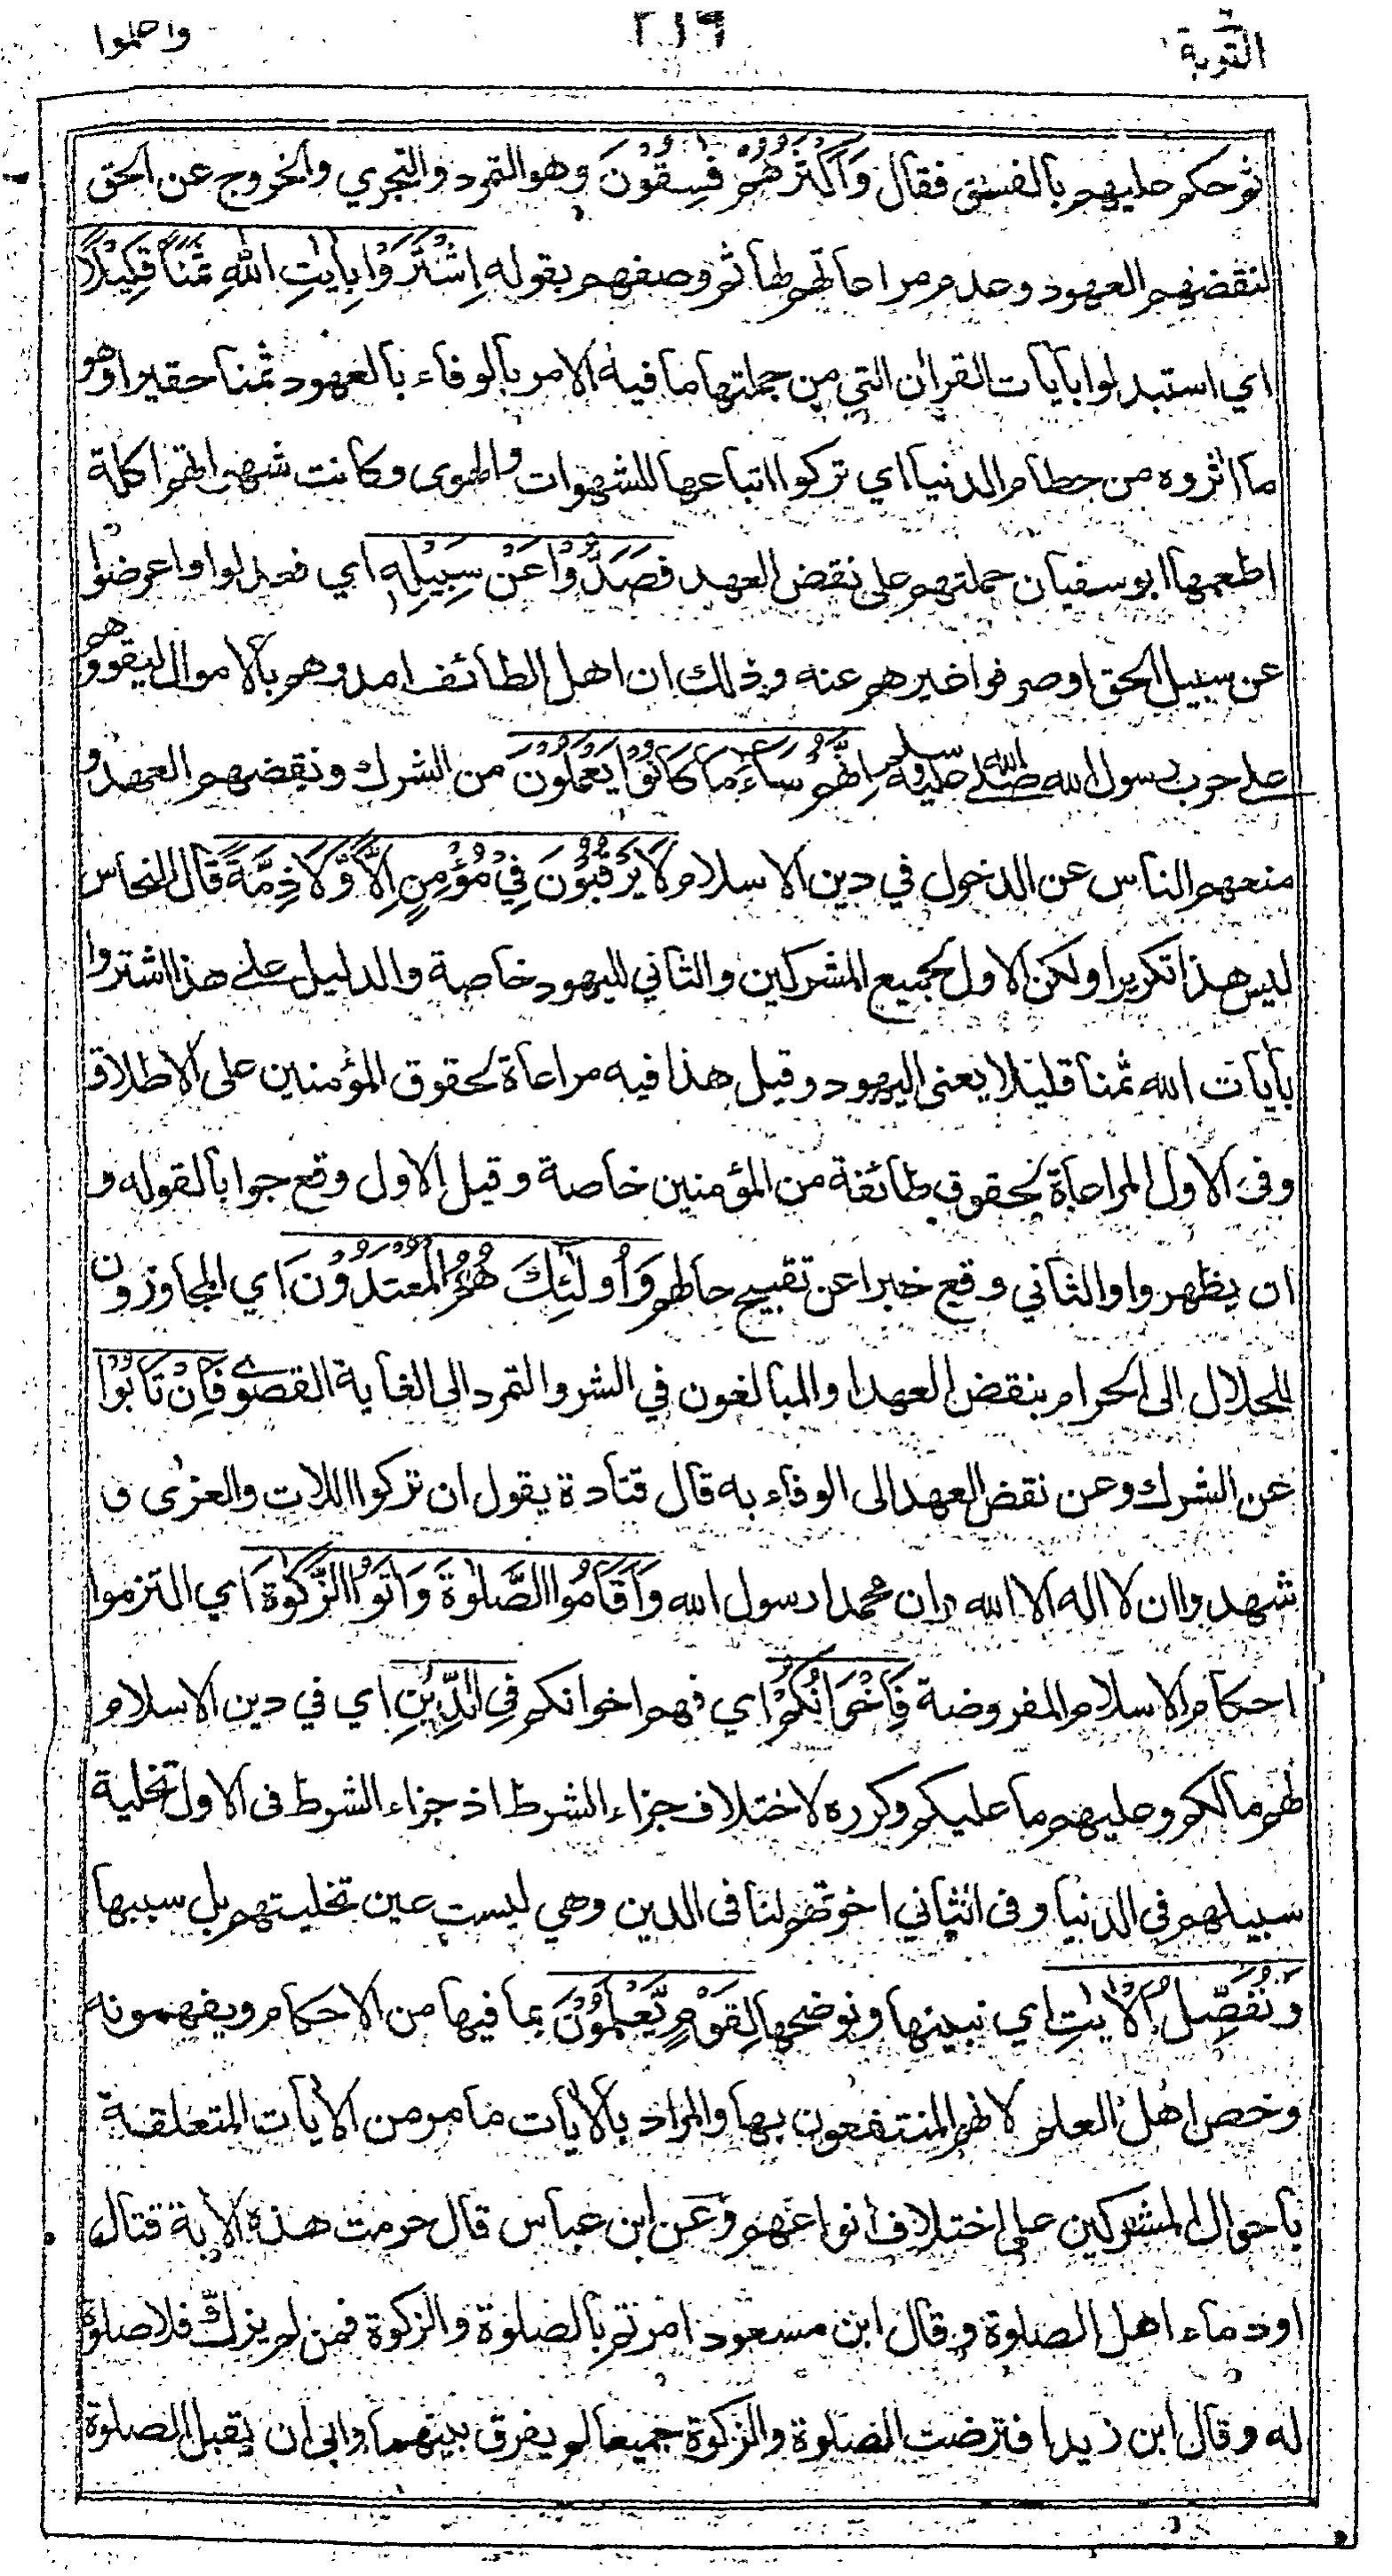 التوبة ٢١٦ واعلموا
ثم حكم عليهم بالفسق فقال وَأَكْثَرُهُمْ فٰسِقُوْنَ وهو التمرد والتجري والخروج عن الحق
لنقضهم العهود وعدم مراعاتهم لها ثم وصفهم بقوله اِشْتَرَوْا بِاٰيٰتِ اللّٰهِ ثَمَنًا قَلِيْلًا
اي استبدلوا بأيات القرأن التي من جملتها ما فيه الامر بالوفاء بالعهود ثمنا حقيرا وهو
ما اثروه من حطام الدنيا اي تركوا اتباعها للشهوات والهوى وكانت شهواتهم اكلة
اطعمها ابو سفيان حملتهم على نقض العهد فَصَدُّوْا عَنْ سَبِيْلِهٖ اي فعدلوا واعرضوا
عن سبيل الحق او صرفوا غيرهم عنه وذلك ان اهل الطائف امدوهم بالاموال ليقووهم
على حرب رسول الله صلى الله عليه وسلم اِنَّهُمْ سَاءَ مَا كَانُوْا يَعْمَلُوْنَ من الشرك ونقضهم العهد و
منعهم الناس عن الدخول في دين الاسلام لَا يَرْقُبُوْنَ فِيْ مُؤْمِنٍ اِلًّا وَّلَا ذِمَّةً قال النحاس
ليس هذا تكريرا ولكن الاول لجميع المشركين والثاني لليهود خاصة والدليل على هذا اشتروا
بأيات الله ثمنا قليلا يعنى اليهود وقيل هذا فيه مراعاة لحقوق المؤمنين على الاطلاق
وفى الاول المراعاة لحقوق طائفة من المؤمنين خاصة وقيل الاول وقع جوابا لقوله و
ان يظهروا والثاني وقع خبرا عن تقبيح حالهم وَاُولٰئِكَ هُمُ الْمُعْتَدُوْنَ اي المجاوزون
للحلال الى الحرام بنقض العهد او المبالغون في الشر والتمرد الى الغاية القصوى فَاِنْ تَابُوْا
عن الشرك وعن نقض العهد الى الوفاء به قال قتادة يقول ان تركوا اللات والعزى و
شهدوا ان لا اله الا الله وان محمدا رسول الله وَاَقَامُوا الصَّلٰوةَ وَاٰتَوُا الزَّكٰوةَ اي التزموا
احكام الاسلام المفروضة فَاِخْوَانُكُمْ اي فهم اخوانكم فِى الدِّيْنِ اي في دين الاسلام
لهم ما لكم وعليهم ما عليكم وكرره لاختلاف جزاء الشرط اذ جزاء الشرط فى الاول تخلية
سبيلهم فى الدنيا وفى الثاني اخوتهم لنا فى الدين وهي ليست عين تخليتهم بل سببها
وَنُفَصِّلُ الْاٰيٰتِ اي نبينها ونوضحها لِقَوْمٍ يَّعْلَمُوْنَ بما فيها من الاحكام ويفهمونه
وخص اهل العلم لانهم المنتفعون بها والمراد بالأيات ما مر من الأيات المتعلقة
باحوال المشركين على اختلاف انواعهم وعن ابن عباس قال حرمت هذه الأية قتال
او دماء اهل الصلوة وقال ابن مسعود امرتم بالصلوة والزكوة فمن لم يزك فلا صلوة
له وقال ابن زيد افترضت الصلوة والزكوة جميعا لم يفرق بينهما وابى ان يقبل الصلوة